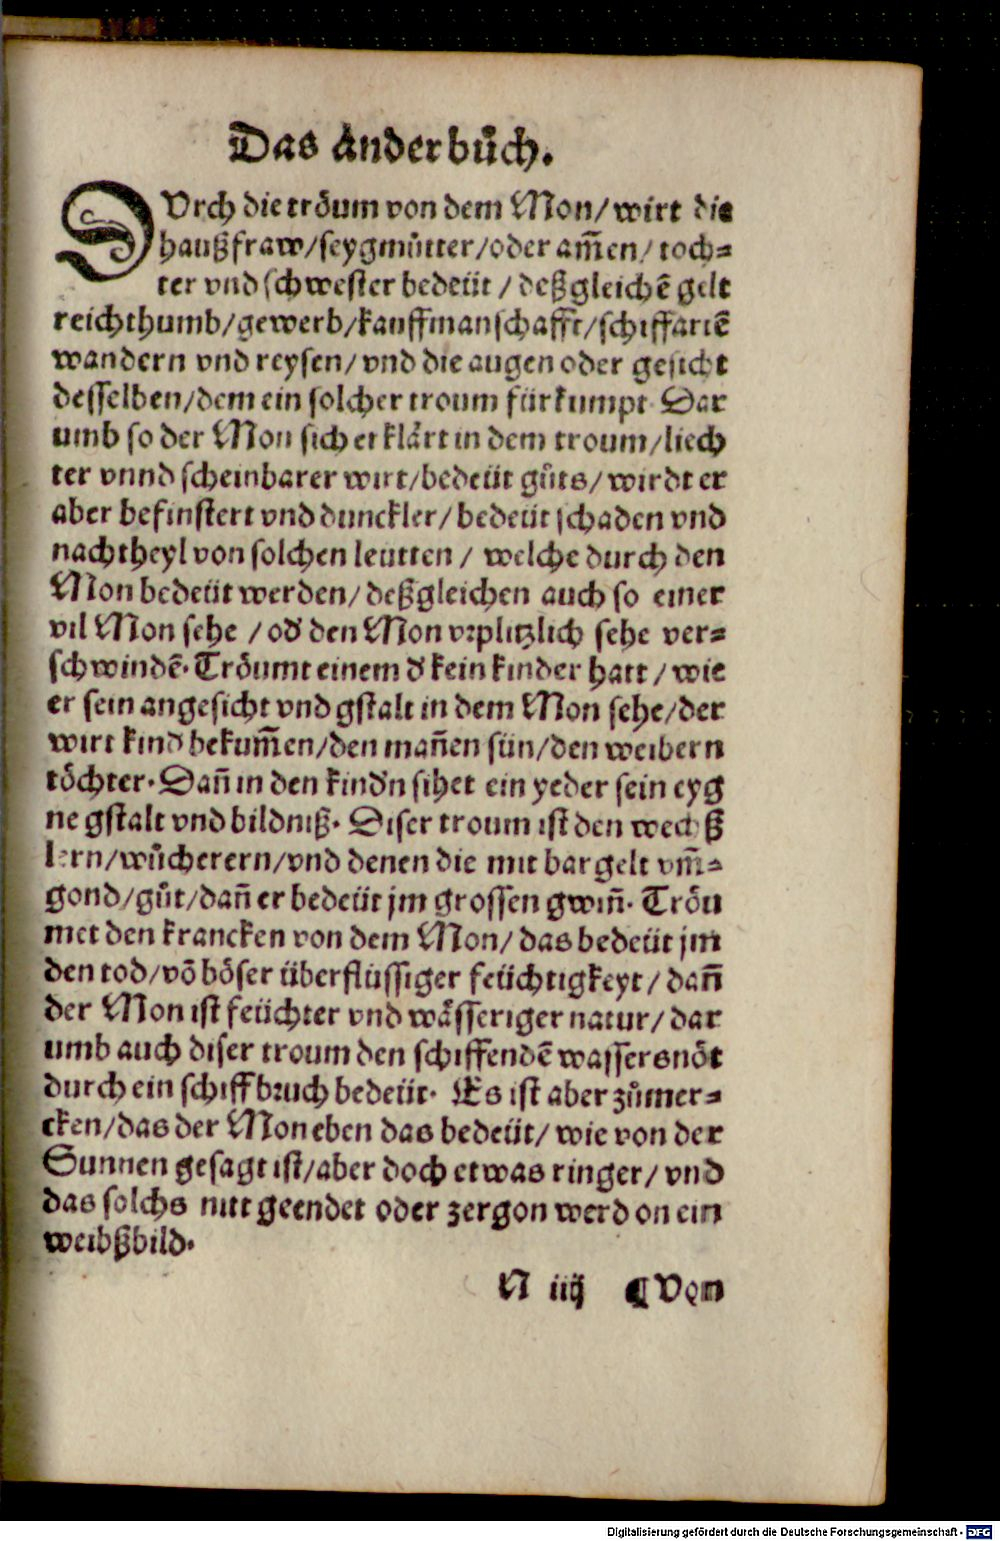 Das Ander bůch.
DVrch die tröum von dem Mon/ wirt die
haußfraw/seygmůtter/oder am̄en/ toch⸗
ter vnd schwester bedeüt / deßgleichē gelt
reichthumb/gewerb/kauffmanschafft/schiffartē
wandern vnd reysen/ vnd die augen oder gesicht
desselben/dem ein solcher troum fürkumpt Dar
umb so der Mon sich erklärt in dem troum/liech
ter vnnd scheinbarer wirt/bedeüt gůts/ wirdt er
aber befinstert vnd dunckler/ bedeüt schaden vnd
nachtheyl von solchen leütten / welche durch den
Mon bedeüt werden/ deßgleichen auch so einer
vil Mon sehe / od̕ den Mon vrplitzlich sehe ver⸗
schwindē. Tröumt einem d̕ kein kinder hatt / wie
er sein angesicht vnd gstalt in dem Mon sehe/der
wirt kind bekum̄en/den mañen sün/den weibern
töchter. Dañ in den kind̕n sihet ein yeder sein eyg
ne gstalt vnd bildniß. Diser troum ist den wechß
lern/wůcherern/vnd denen die mit bar gelt vm̄⸗
gond/gůt/dañ er bedeüt jm grossen gwiñ. Tröu
met den krancken von dem Mon/ das bedeüt jm
den tod/vō böser überflüssiger feüchtigkeyt/ dañ
der Mon ist feüchter vnd wässeriger natur/ dar
umb auch diser troum den schiffendē wassersnöt
durch ein schiffbruch bedeüt. Es ist aber zůmer⸗
cken/das der Mon eben das bedeüt/ wie von der
Sunnen gesagt ist/aber doch etwas ringer/ vnd
das solchs nitt geendet oder zergon werd on ein
weibßbild.
N iiij ¶ Von
Digitalisierung gefördert durch die Deutsche Forschungsgemeinschaft - DFG